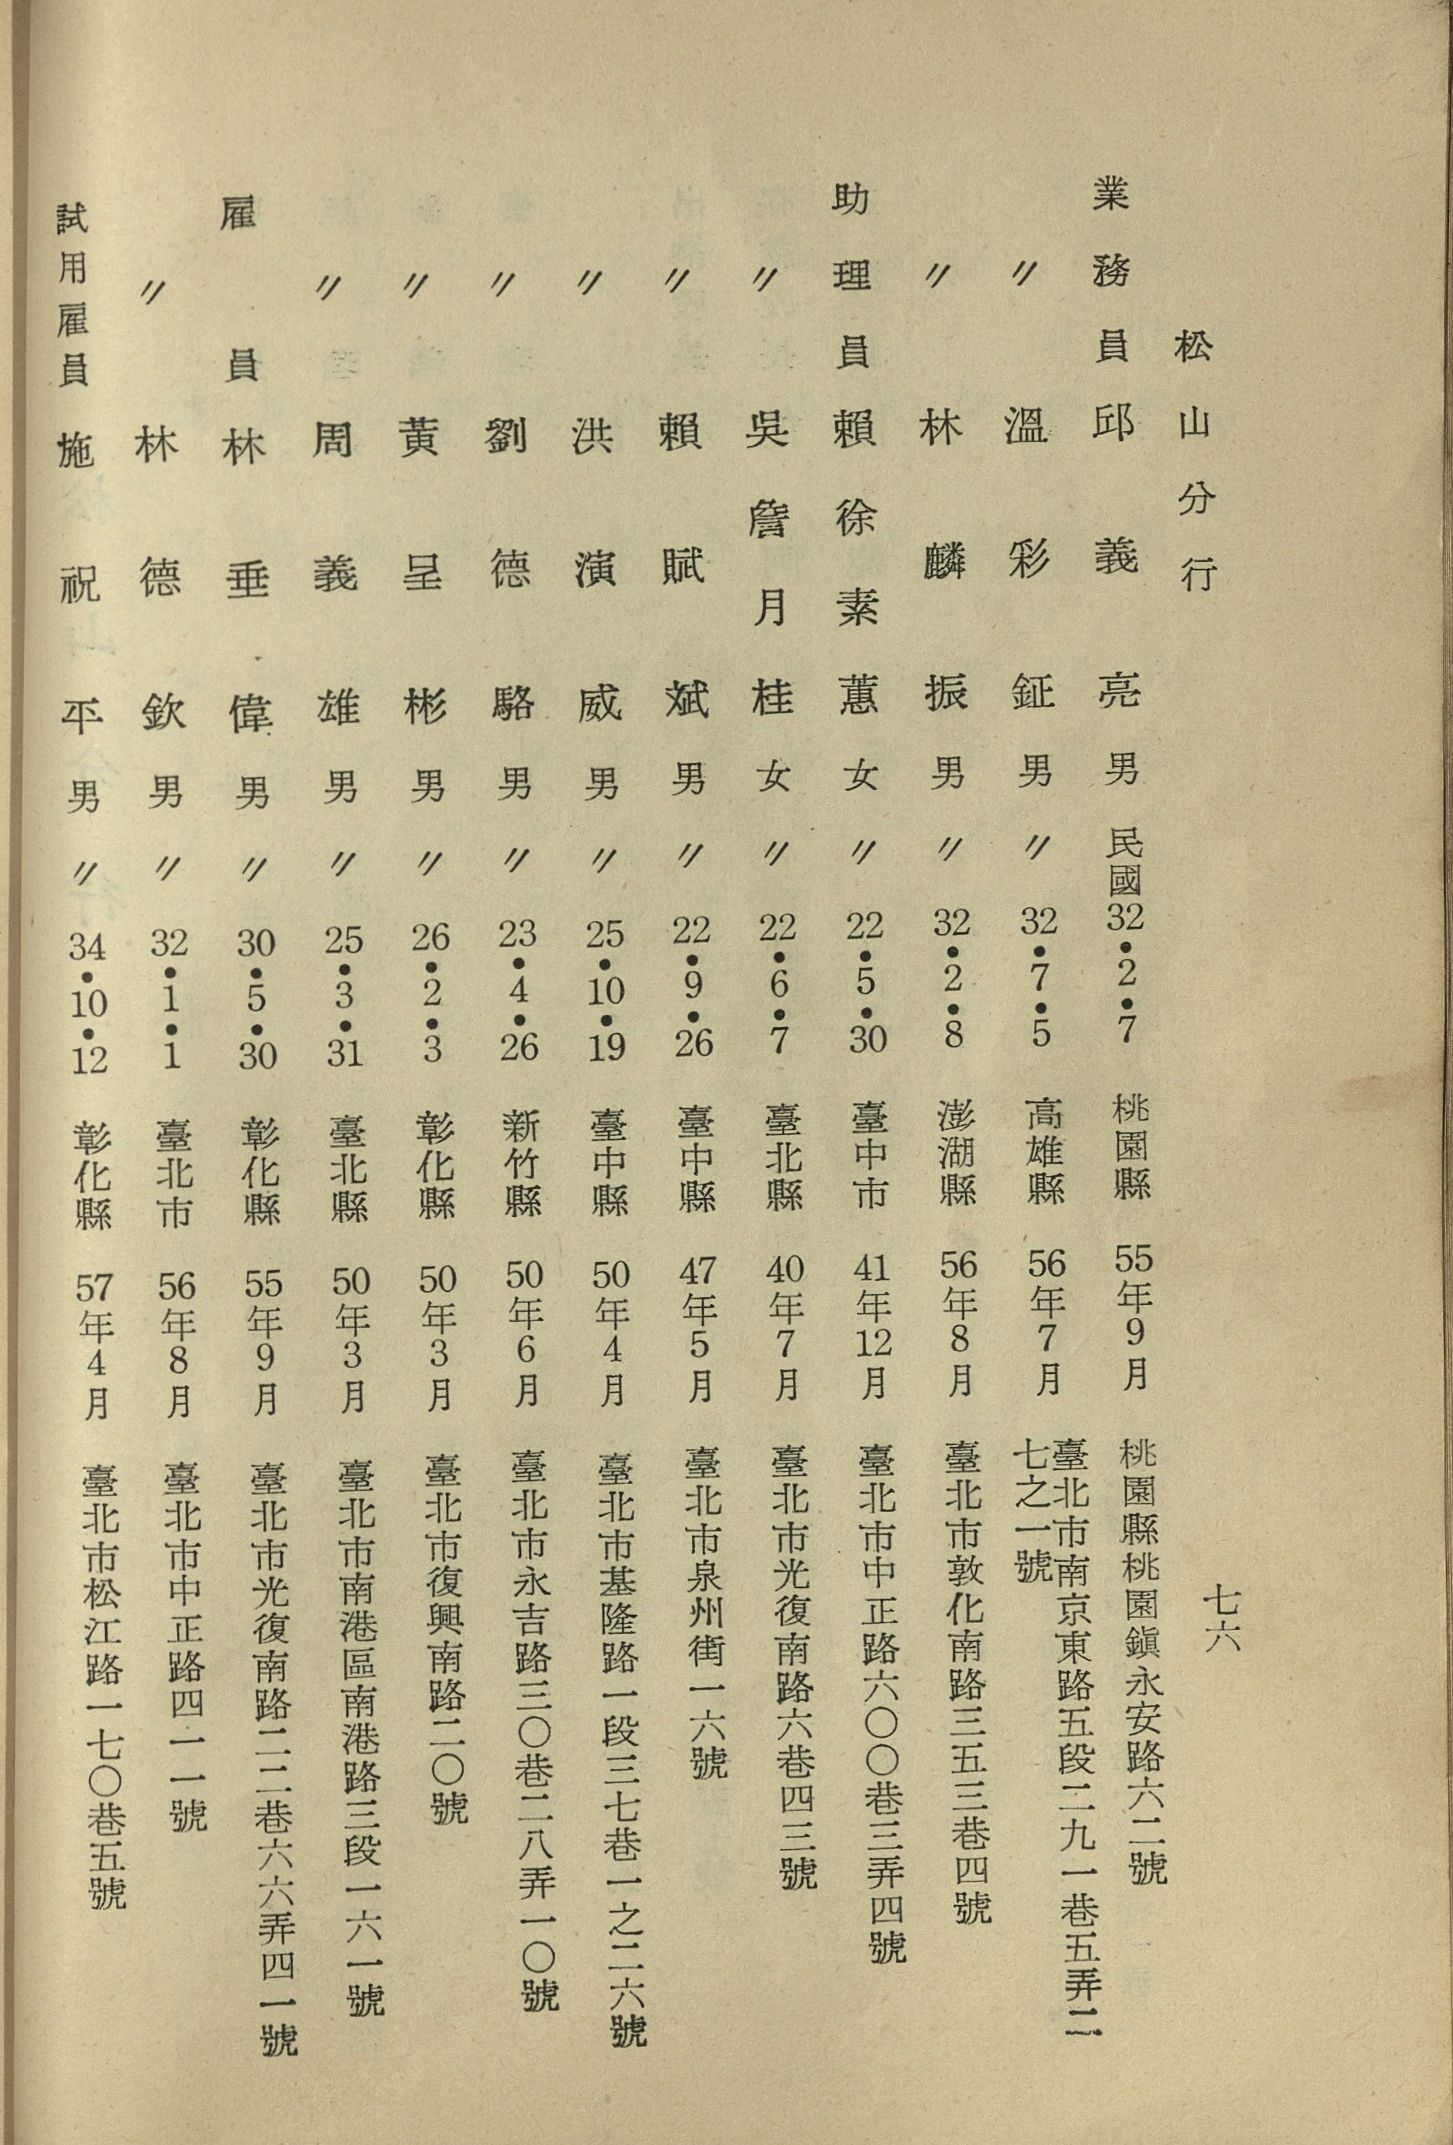 七六
松山分行
業務員 邱義亮 男 民國32•2•7 桃園縣 55年9月 桃園縣桃園鎭永安路六二號
〃 溫彩鉦 男 〃 32•7•5 高雄縣 56年7月 臺北市南京東路五段二九一巷五弄二
七之一號
〃 林麟振 男 〃 32•2•8 澎湖縣 56年8月 臺北市敦化南路三五三巷四號
助理員 賴徐素蕙 女 〃 22•5•30 臺中市 41年12月 臺北市中正路六〇〇巷三弄四號
〃 吳詹月桂 女 〃 22•6•7 臺北縣 40年7月 臺北市光復南路六巷四三號
〃 賴賦斌 男 〃 22•9•26 臺中縣 47年5月 臺北市泉州街一六號
〃 洪演威 男 〃 25•10•19 臺中縣 50年4月 臺北市基隆路一段三七巷一之二六號
〃 劉德駱 男 〃 23•4•26 新竹縣 50年6月 臺北市永吉路三〇巷二八弄一〇號
〃 黃呈彬 男 〃 26•2•3 彰化縣 50年3月 臺北市復興南路二〇號
〃 周義雄 男 〃 25•3•31 臺北縣 50年3月 臺北市南港區南港路三段一六一號
雇員 林垂偉 男 〃 30•5•30 彰化縣 55年9月 臺北市光復南路二二巷六六弄四一號
〃 林德欽 男 〃 32•1•1 臺北市 56年8月 臺北市中正路四一一號
試用雇員 施祝平 男 〃 34•10•12 彰化縣 57年4月 臺北市松江路一七〇巷五號